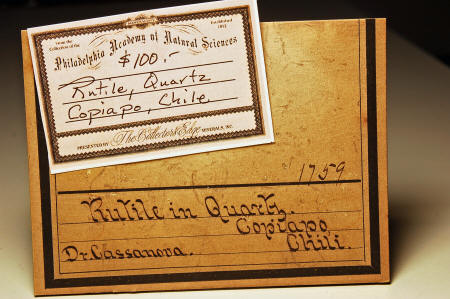 From the
Collection of the
Established
1812
Philadelphia Academy of Natural Sciences
$100.-
Rutile, Quartz
Copiapo, Chile
PRESENTED BY The Collector's Edge MINERALS, INC.
1759
Rutile in Quartz.
Copiapo
Chili.
Dr. Cassanova.